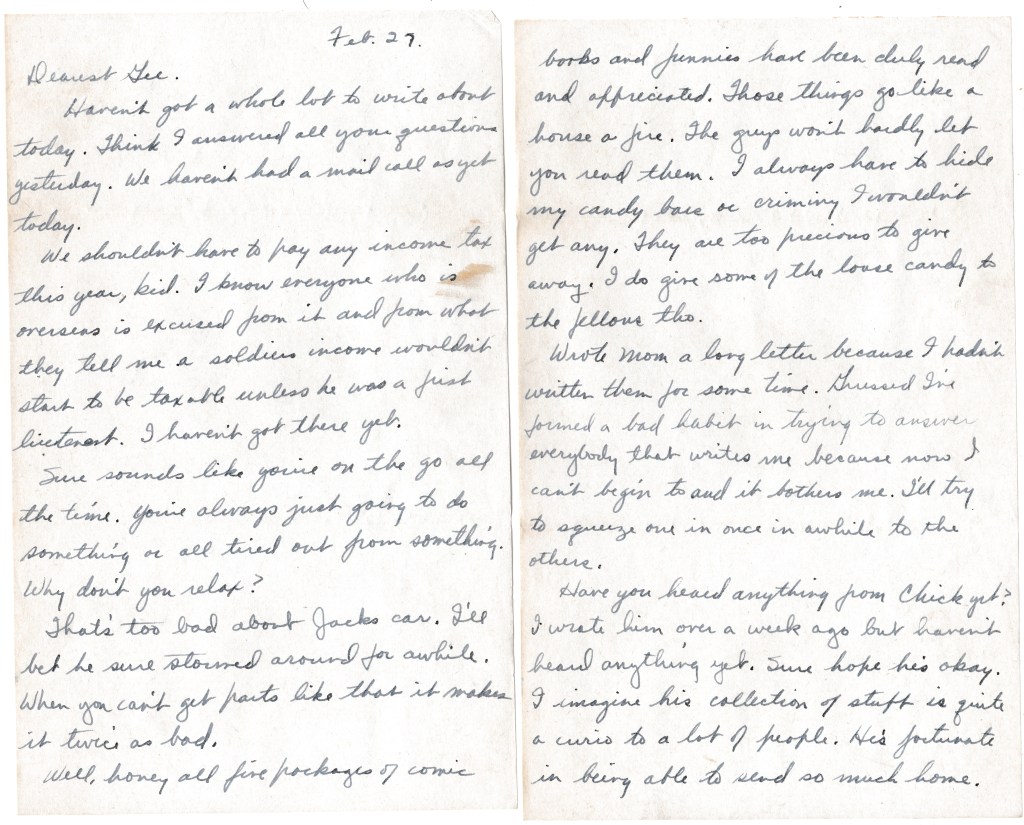 Feb. 27.
Dearest Gee.
Haven't got a whole lot to write about
today. Think I answered all your questions
yesterday. We haven't had a mail call as yet
today.
We shouldn't have to pay any income tax
this year, kid. I know everyone who is
overseas is excused from it and from what
they tell me a soldiers income wouldn't
start to be taxable unless he was a first
lieutenant. I haven't got there yet.
Sure sounds like you're on the go all
the time. You're always just going to do
something or all tired out from something.
Why don't you relax?
That's too bad about Jacks car. I'll
bet he sure stormed around for awhile.
When you can't get parts like that it makes
it twice as bad.
Well, honey all five packages of comic
books and funnies have been duly read
and appreciated. Those things go like a
house a fire. The guys won't hardly let
you read them. I always have to hide
my candy bars or criminy I wouldn't
get any. They are too precious to give
away. I do give some of the loose candy to
the fellows tho.
Wrote Mom a long letter because I hadn't
written them for some time. Guessed I've
formed a bad habit in trying to answer
everybody that writes me because now I
can't begin to and it bothers me. I'll try
to squeeze one in once in awhile to the
others.
Have you heard anything from Chick yet?
I wrote him over a week ago but haven't
heard anything yet. Sure hope he's okay.
I imagine his collection of stuff is quite
a curio to a lot of people. He's fortunate
in being able to send so much home.